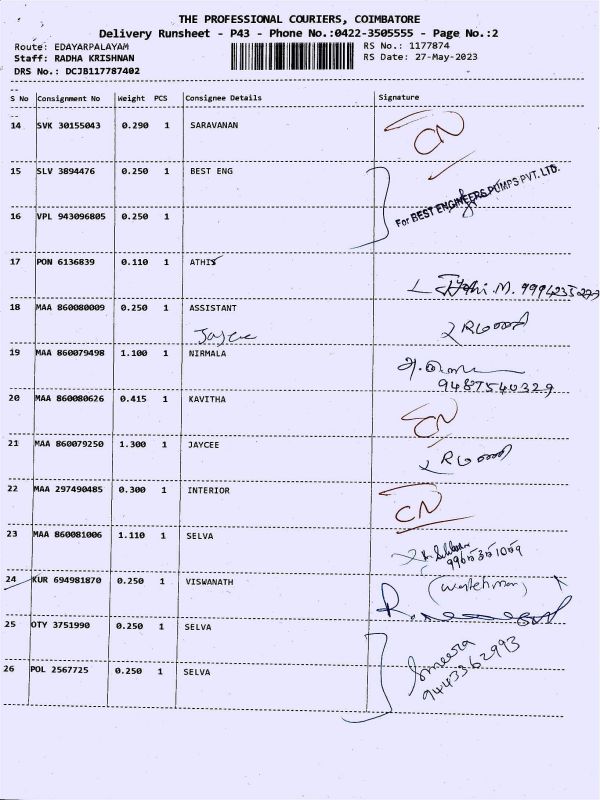 THE PROFESSIONAL COURIERS, COIMBATORE
Delivery Runsheet - P43 - Phone No.:0422-3505555 - Page No.:2
Route: EDAYARPALAYAM RS No.: 1177874
Staff: RADHA KRISHNAN RS Date: 27-May-2023
DRS No.: DCJB117787402
S No Consignment No Weight PCS Consignee Details Signature
14 SVK 30155043 0.290 1 SARAVANAN CN
15 SLV 3894476 0.250 1 BEST ENG
For BEST ENGINEERS PUMPS PVT. LTD.
16 VPL 943096805 0.250 1
17 PON 6136839 0.110 1 ATHIS
M. 9994235277
18 MAA 860080009 0.250 1 ASSISTANT
Jaycee
19 MAA 860079498 1.100 1 NIRMALA
9487540329
20 MAA 860080626 0.415 1 KAVITHA CN
21 MAA 860079250 1.300 1 JAYCEE
22 MAA 297490485 0.300 1 INTERIOR CN
23 MAA 860081006 1.110 1 SELVA
9965351059
24 KUR 694981870 0.250 1 VISWANATH (Watchman)
25 OTY 3751990 0.250 1 SELVA
26 POL 2567725 0.250 1 SELVA
9443362993